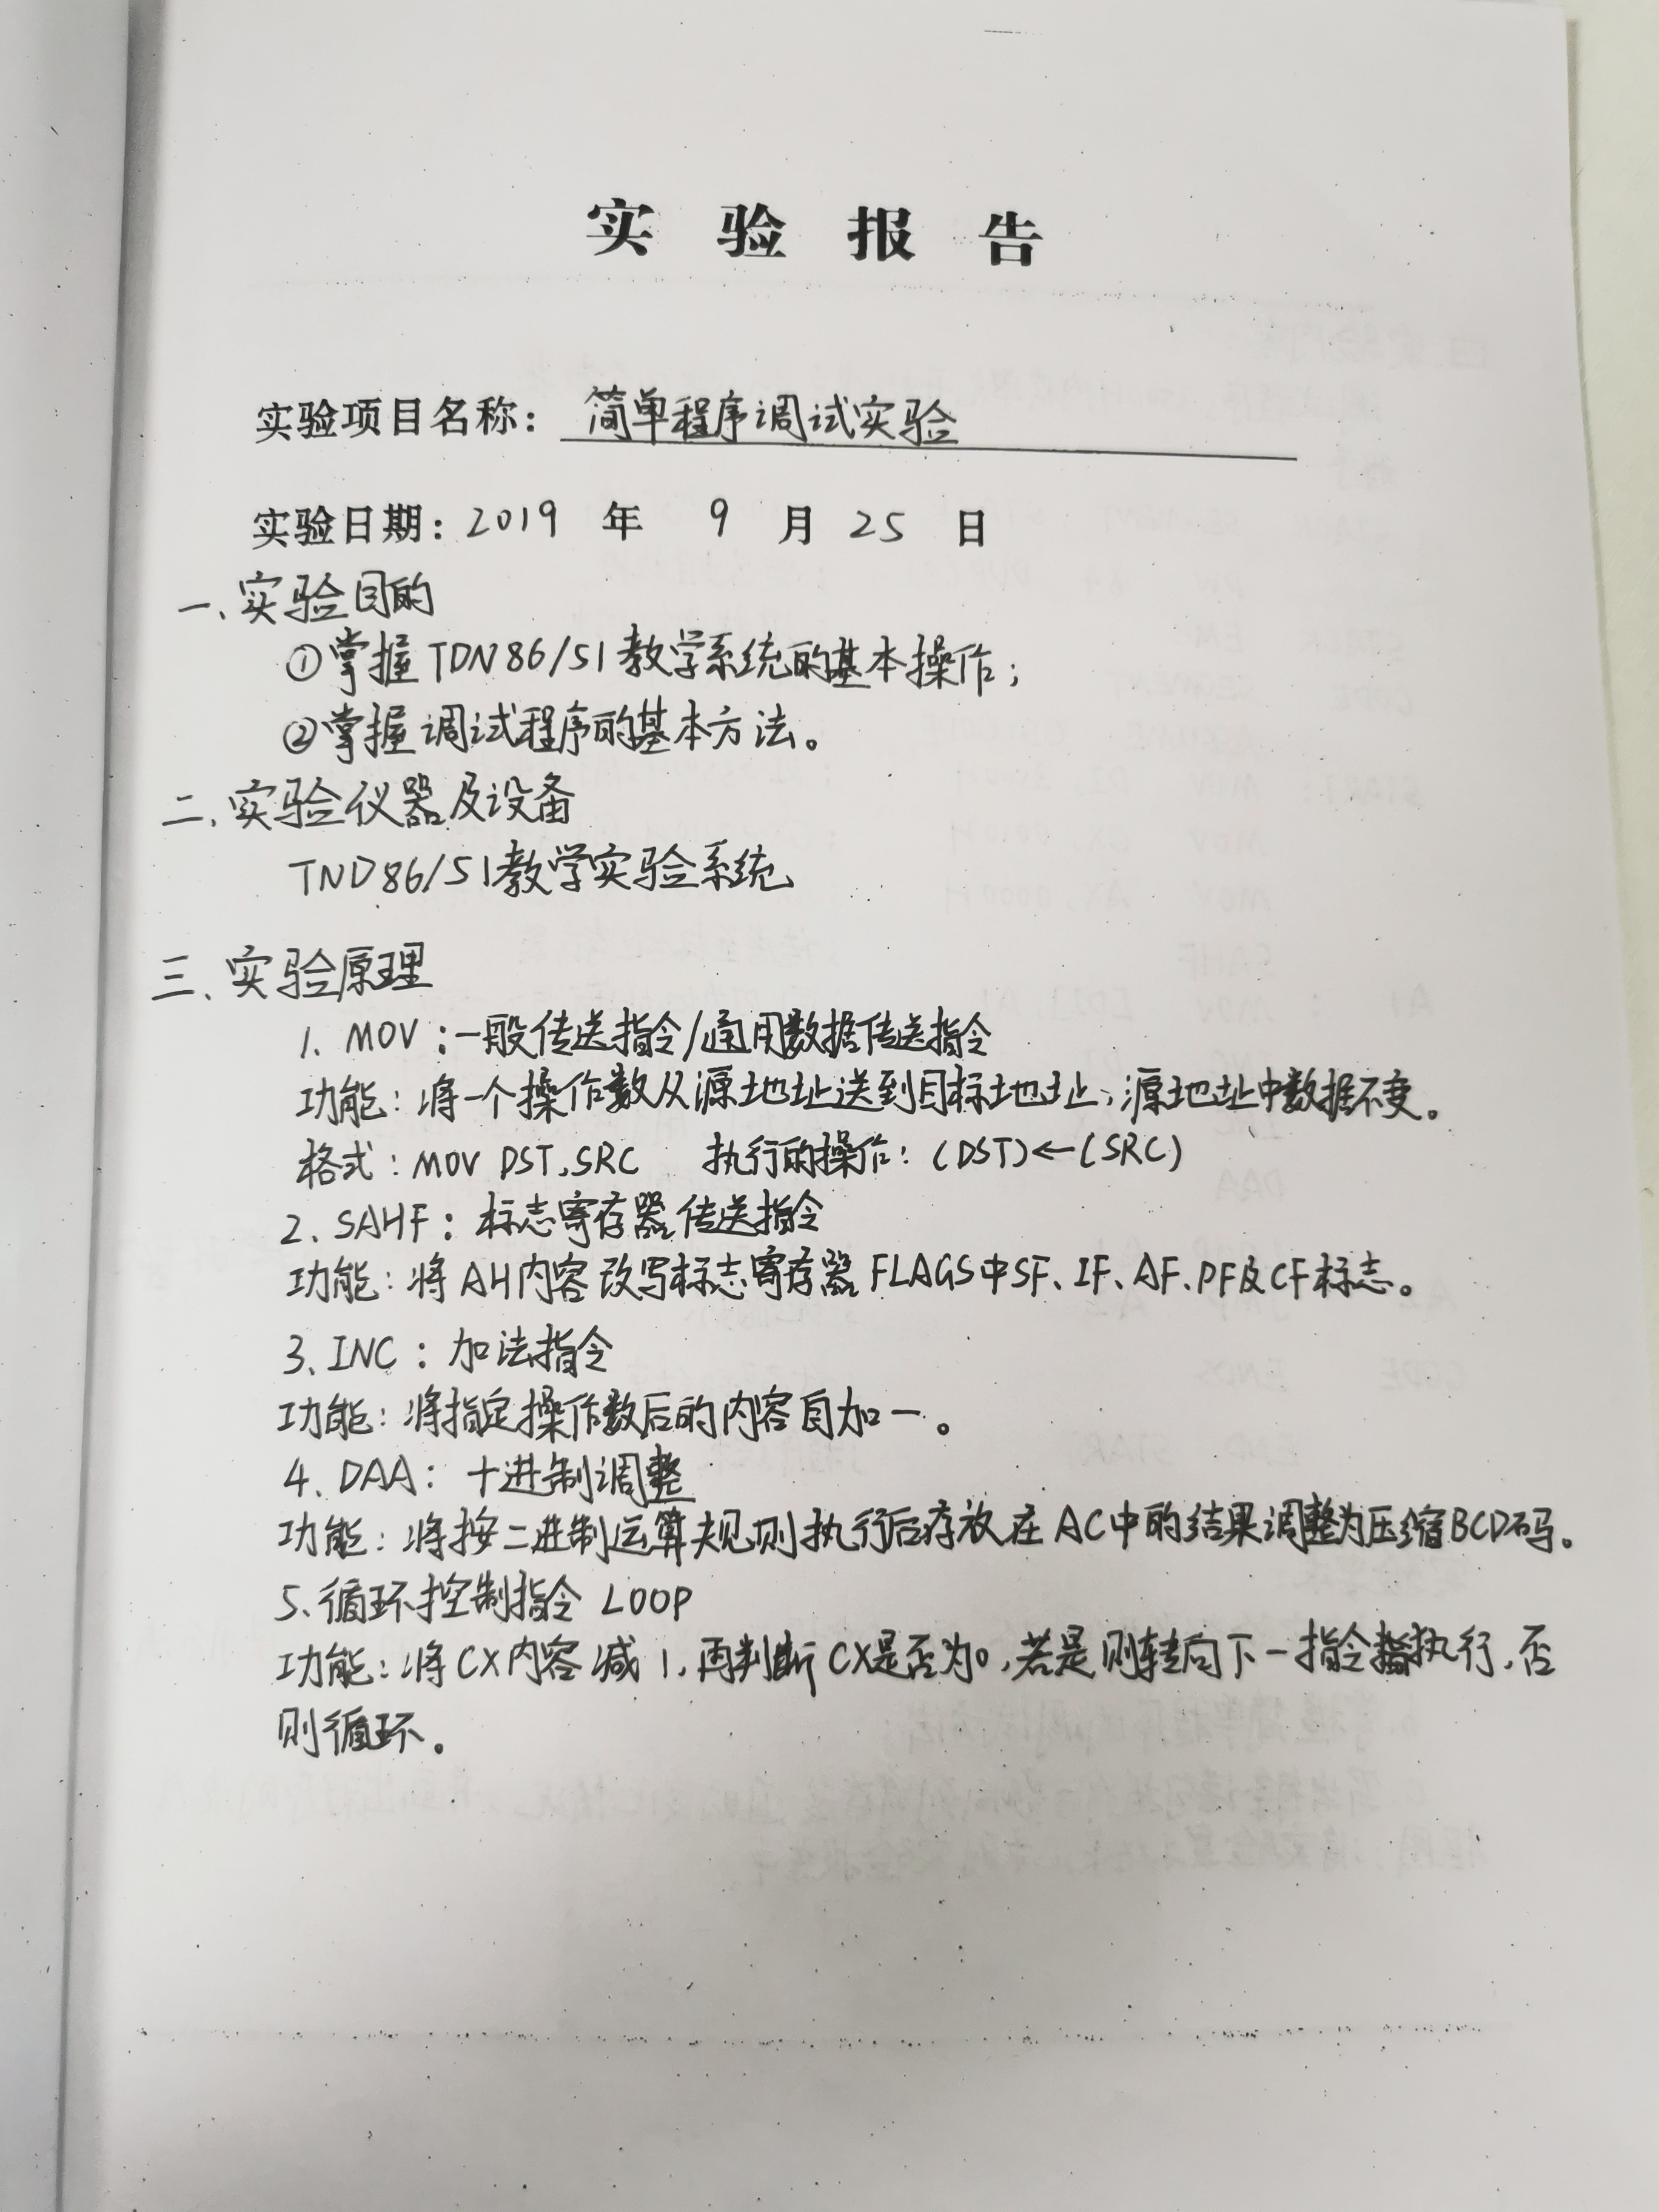 实验报告
实验项目名称：简单程序调试实验
实验日期：2019 年 9 月 25 日
一、实验目的
①掌握TDN86/51教学系统的基本操作；
②掌握调试程序的基本方法。
二、实验仪器及设备
TND86/51教学实验系统
三、实验原理
1、MOV：一般传送指令/通用数据传送指令
功能：将一个操作数从源地址送到目标地址，源地址中数据不变。
格式：MOV DST,SRC 执行的操作：(DST)←(SRC)
2、SAHF：标志寄存器传送指令
功能：将AH内容改写标志寄存器FLAGS中SF、IF、AF、PF及CF标志。
3、INC：加法指令
功能：将指定操作数后的内容自加一。
4、DAA：十进制调整
功能：将按二进制运算规则执行后存放在AC中的结果调整为压缩BCD码。
5、循环控制指令 LOOP
功能：将CX内容减1,再判断CX是否为0,若是则转向下一指令执行,否
则循环。